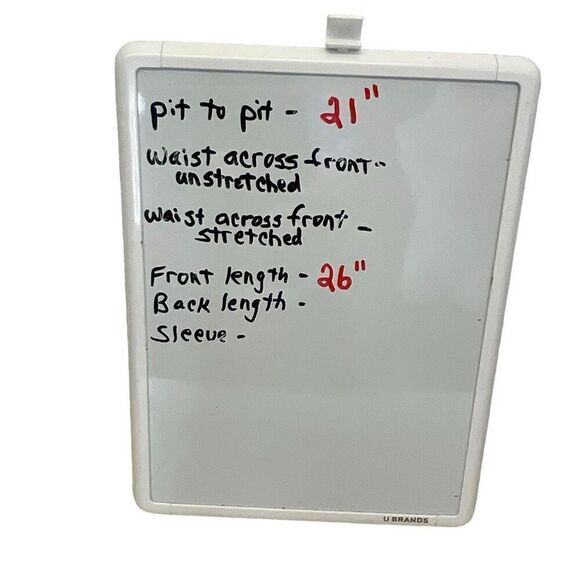 pit to pit - 21"
waist across front -
unstretched
waist across front -
stretched
Front length - 26"
Back length -
Sleeve -
U BRANDS